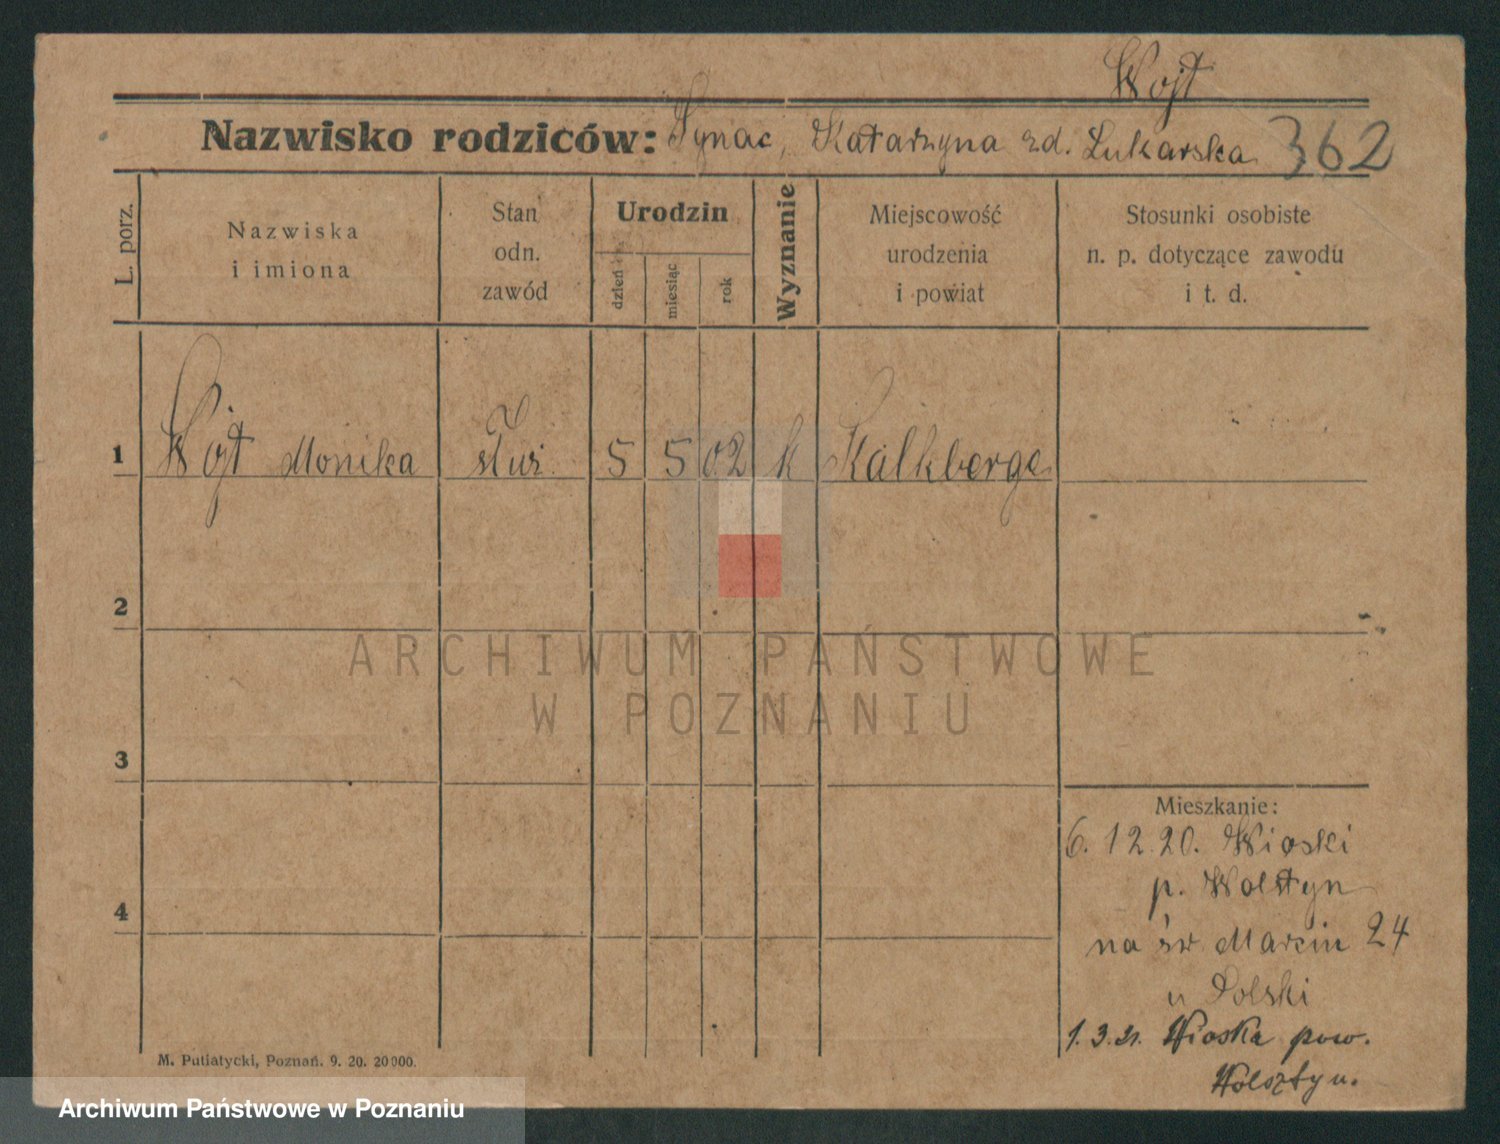 Wojt
Nazwisko rodziców: Ignac, Katarzyna zd. Lukarska 362
L. porz.
Nazwiska
i imiona
Stan
odn.
zawód
Urodzin
dzień
miesiąc
rok
Wyznanie
Miejscowość
urodzenia
i powiat
Stosunki osobiste
n. p. dotyczące zawodu
i t. d.
1 Wojt Monika służ. 5 5 02 k Kalkberge
2
ARCHIWUM PAŃSTWOWE
W POZNANIU
3
4
Mieszkanie:
6. 12 20. Wioski
p. Wolstyn
na św. Marcin 24
u Polski
1. 3. 21. Wioska pow.
Wolsztyn.
M. Putiatycki, Poznań. 9. 20. 20000.
Archiwum Państwowe w Poznaniu